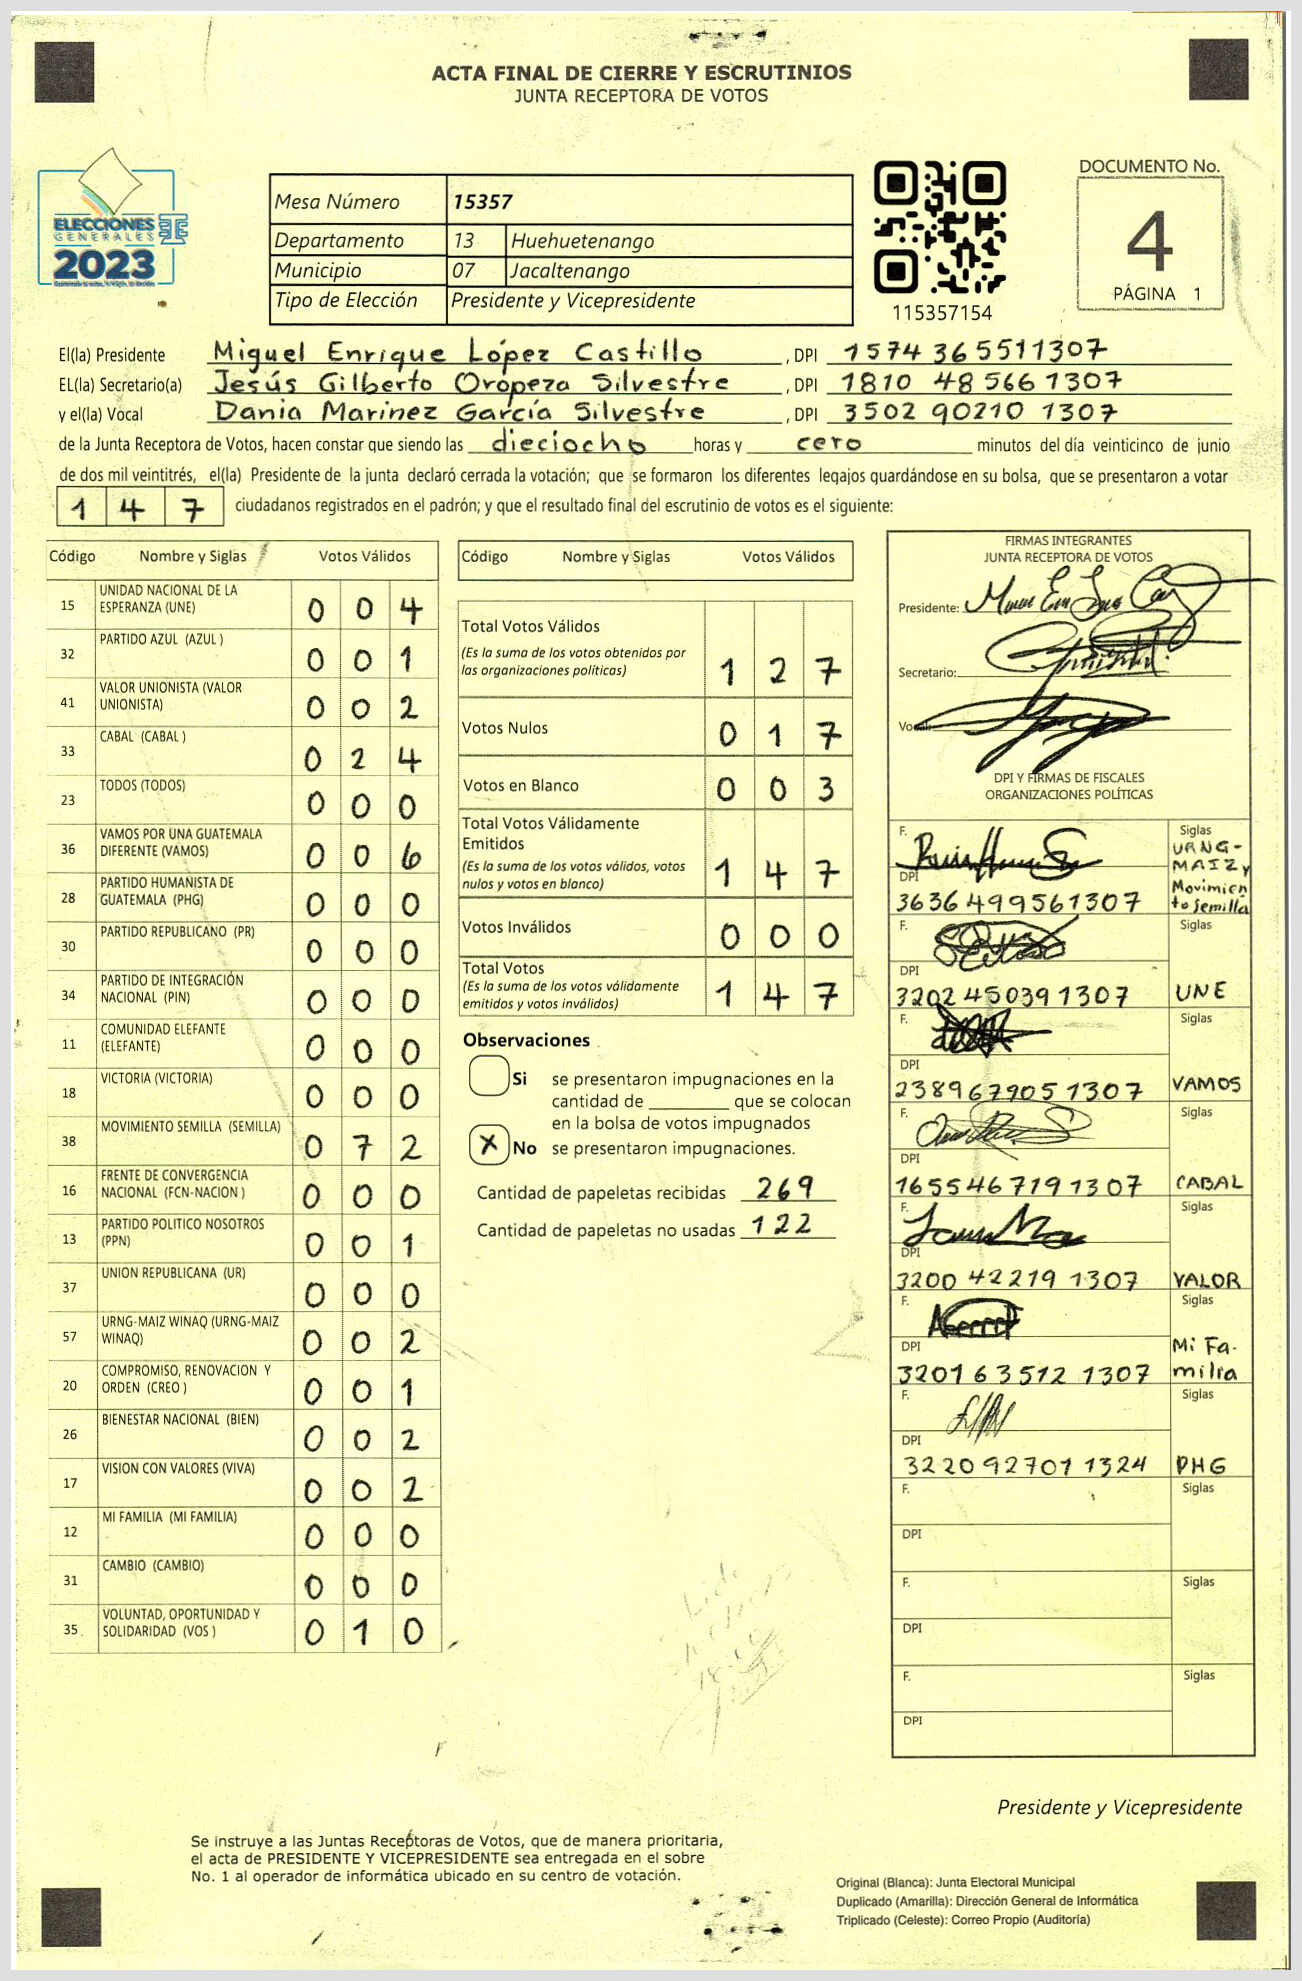 ACTA FINAL DE CIERRE Y ESCRUTINIOS
JUNTA RECEPTORA DE VOTOS
ELECCIONES
GENERALES
2023
Mesa Número 15357
Departamento 13 Huehuetenango
Municipio 07 Jacaltenango
Tipo de Elección Presidente y Vicepresidente
115357154
DOCUMENTO No.
4
PÁGINA 1
El(la) Presidente Miguel Enrique López Castillo , DPI 1574 365511307
EL(la) Secretario(a) Jesús Gilberto Oropeza Silvestre , DPI 1810 48566 1307
y el(la) Vocal Dania Marinez García Silvestre , DPI 3502 90210 1307
de la Junta Receptora de Votos, hacen constar que siendo las dieciocho horas y cero minutos del día veinticinco de junio
de dos mil veintitrés, el(la) Presidente de la junta declaró cerrada la votación; que se formaron los diferentes legajos guardándose en su bolsa, que se presentaron a votar
1 4 7 ciudadanos registrados en el padrón; y que el resultado final del escrutinio de votos es el siguiente:
Código Nombre y Siglas Votos Válidos
15 UNIDAD NACIONAL DE LA ESPERANZA (UNE) 0 0 4
32 PARTIDO AZUL (AZUL ) 0 0 1
41 VALOR UNIONISTA (VALOR UNIONISTA) 0 0 2
33 CABAL (CABAL ) 0 2 4
23 TODOS (TODOS) 0 0 0
36 VAMOS POR UNA GUATEMALA DIFERENTE (VAMOS) 0 0 6
28 PARTIDO HUMANISTA DE GUATEMALA (PHG) 0 0 0
30 PARTIDO REPUBLICANO (PR) 0 0 0
34 PARTIDO DE INTEGRACIÓN NACIONAL (PIN) 0 0 0
11 COMUNIDAD ELEFANTE (ELEFANTE) 0 0 0
18 VICTORIA (VICTORIA) 0 0 0
38 MOVIMIENTO SEMILLA (SEMILLA) 0 7 2
16 FRENTE DE CONVERGENCIA NACIONAL (FCN-NACION ) 0 0 0
13 PARTIDO POLITICO NOSOTROS (PPN) 0 0 1
37 UNION REPUBLICANA (UR) 0 0 0
57 URNG-MAIZ WINAQ (URNG-MAIZ WINAQ) 0 0 2
20 COMPROMISO, RENOVACION Y ORDEN (CREO ) 0 0 1
26 BIENESTAR NACIONAL (BIEN) 0 0 2
17 VISION CON VALORES (VIVA) 0 0 2
12 MI FAMILIA (MI FAMILIA) 0 0 0
31 CAMBIO (CAMBIO) 0 0 0
35 VOLUNTAD, OPORTUNIDAD Y SOLIDARIDAD (VOS ) 0 1 0
Código Nombre y Siglas Votos Válidos
Total Votos Válidos
(Es la suma de los votos obtenidos por
las organizaciones políticas) 1 2 7
Votos Nulos 0 1 7
Votos en Blanco 0 0 3
Total Votos Válidamente
Emitidos
(Es la suma de los votos válidos, votos
nulos y votos en blanco) 1 4 7
Votos Inválidos 0 0 0
Total Votos
(Es la suma de los votos válidamente
emitidos y votos inválidos) 1 4 7
Observaciones
Si se presentaron impugnaciones en la
cantidad de ________ que se colocan
en la bolsa de votos impugnados
X No se presentaron impugnaciones.
Cantidad de papeletas recibidas 269
Cantidad de papeletas no usadas 122
FIRMAS INTEGRANTES
JUNTA RECEPTORA DE VOTOS
Presidente:
Secretario:
Vocal:
DPI Y FIRMAS DE FISCALES
ORGANIZACIONES POLÍTICAS
F. Siglas
URNG-
MAIZ y
Movimien
to Semilla
DPI
3636499561307
F. Siglas
DPI
3202 45039 1307 UNE
F. Siglas
DPI
2389679051307 VAMOS
F. Siglas
DPI
1655467191307 CABAL
F. Siglas
DPI
3200 42219 1307 VALOR
F. Siglas
DPI
3201 63512 1307 Mi Fa-
milia
F. Siglas
DPI
3220927011324 PHG
F. Siglas
DPI
F. Siglas
DPI
F. Siglas
DPI
Presidente y Vicepresidente
Se instruye a las Juntas Receptoras de Votos, que de manera prioritaria,
el acta de PRESIDENTE Y VICEPRESIDENTE sea entregada en el sobre
No. 1 al operador de informática ubicado en su centro de votación.
Original (Blanca): Junta Electoral Municipal
Duplicado (Amarilla): Dirección General de Informática
Triplicado (Celeste): Correo Propio (Auditoría)